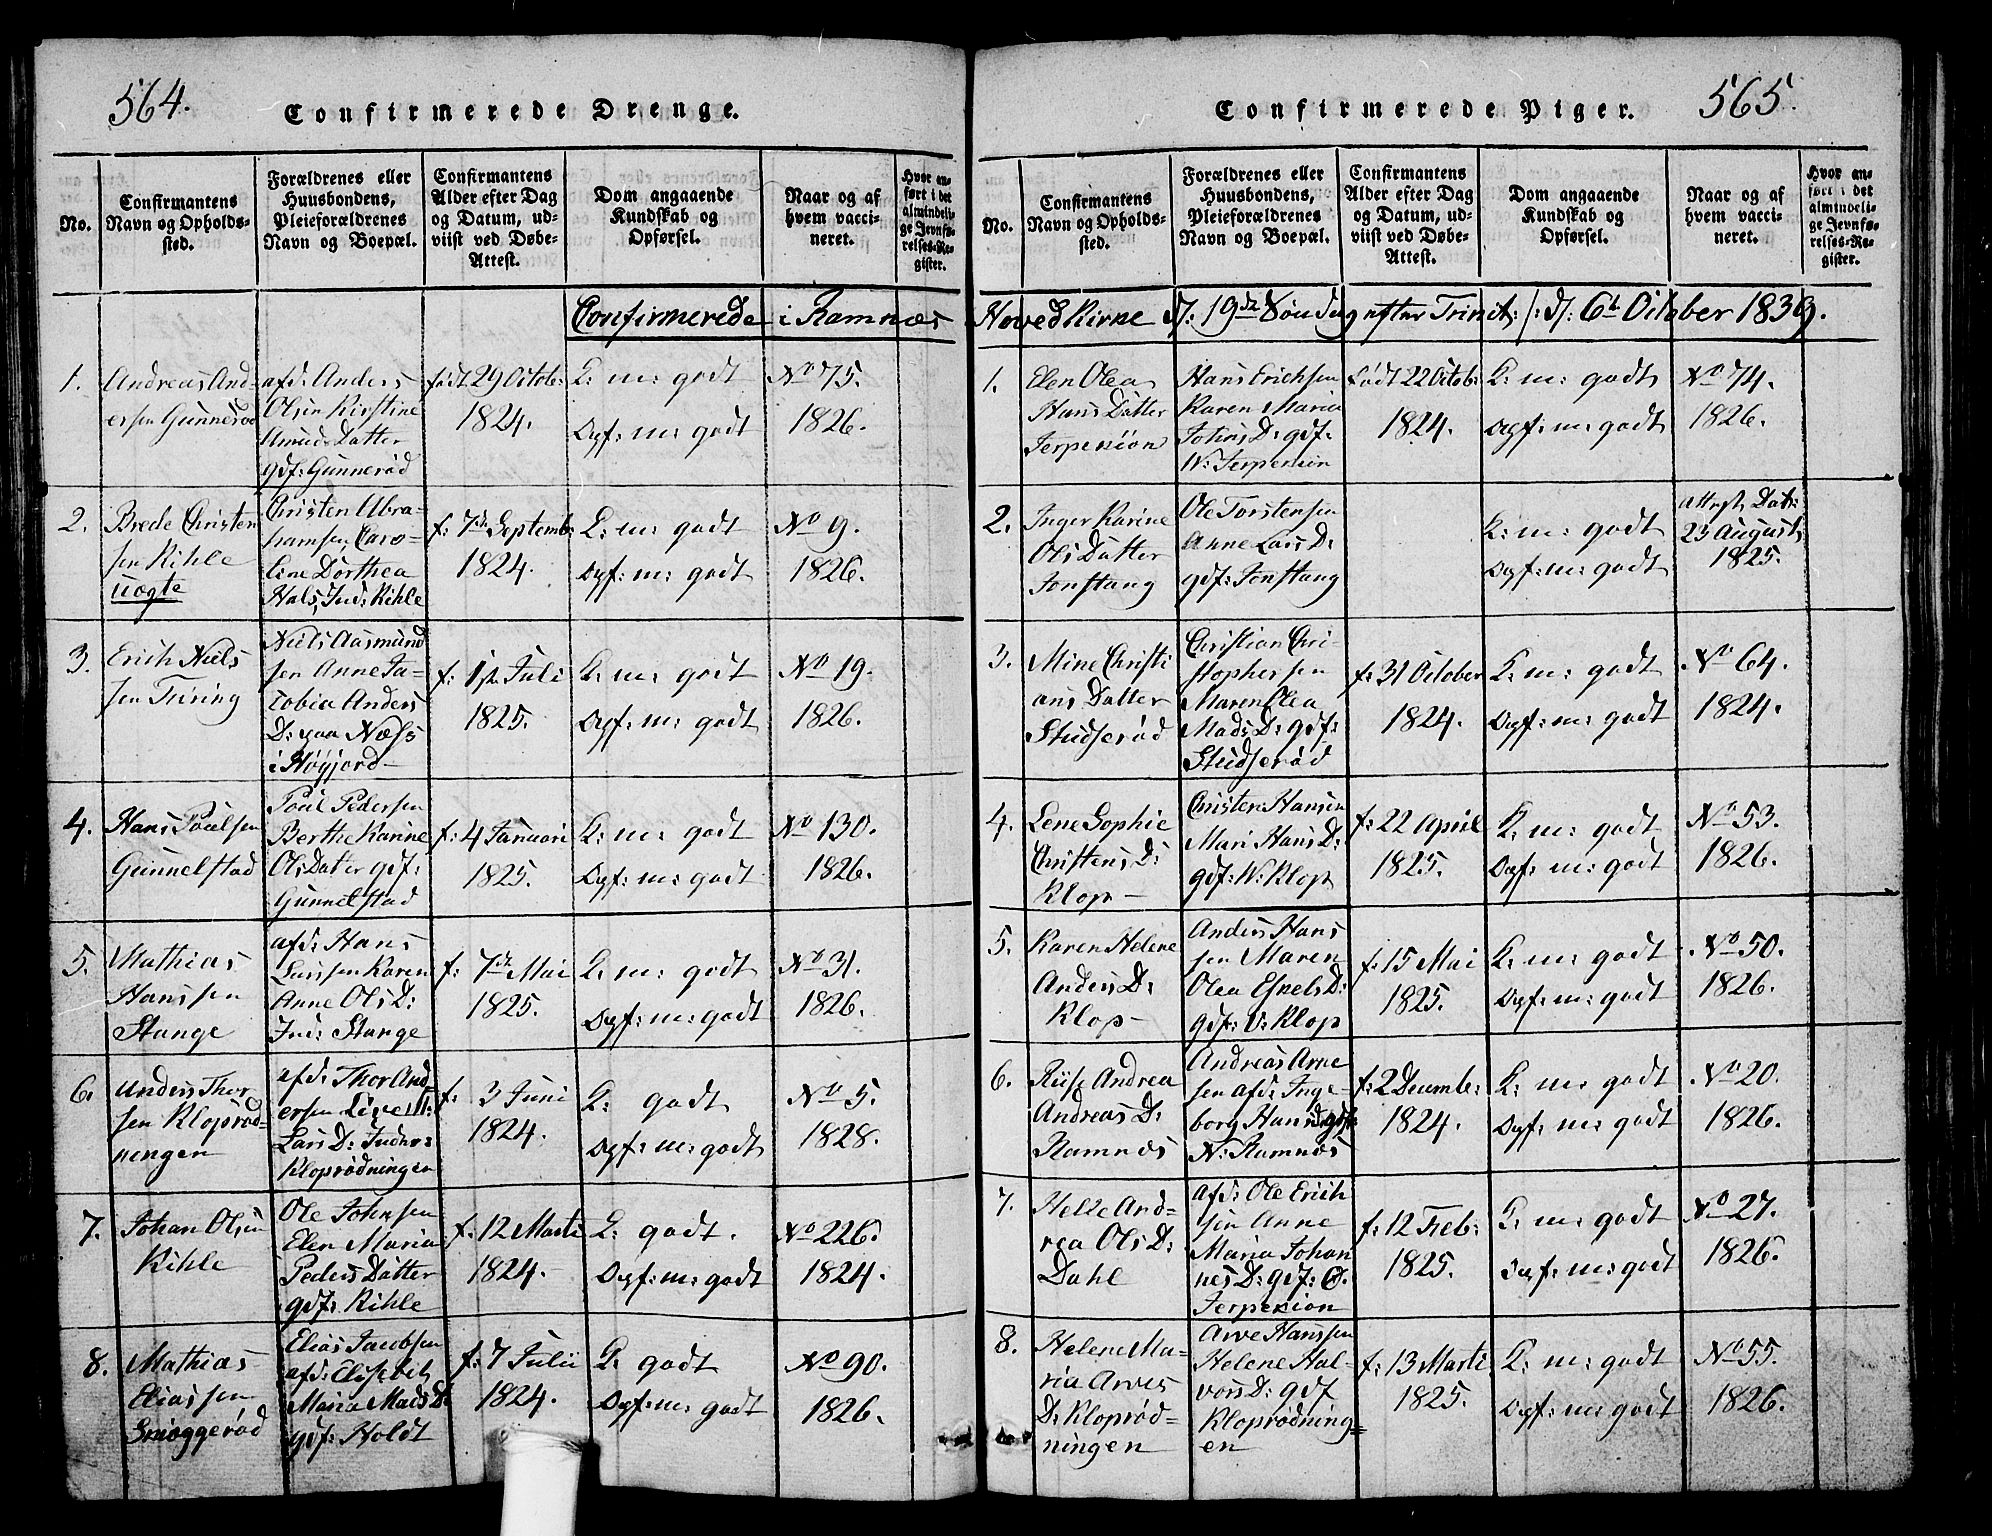 564.
Confirmerede Drenge.
No.
Confirmantens
Navn og Opholds-
sted.
Forældrenes eller
Huusbondens,
Pleieforældrenes
Navn og Boepæl.
Confirmantens
Alder efter Dag
og Datum, ud-
viist ved Døbe-
Attest.
Dom angaaende
Kundskab og
Opførsel.
Naar og af
hvem vacci-
neret.
Hvor an-
ført i det
almindeli-
ge Jevnfø-
relses-Re-
gister.
Confirmerede i Ramnæs
1.
Andreas And-
ersen Gunnerød
afd: Anders
Olsen Kirstine
Amuds Datter
gdf: Gunnerød
født 29 Octob:
1824.
K: m: godt
Opf: m: godt
No 75.
1826.
2.
Brede Christen
sen Kihle
uægte
Christen Abra-
hamsen, Caro-
line Dorthea
Hals, Ind: Kihle
f: 7de Septemb:
1824.
K: m: godt
Opf: m: godt
No 9.
1826.
3.
Erich Niels
sen Turing
Niels Aasmund
sen Anne Ja-
cobia Anders
D: paa Næss
i Høyjord
f: 1ste Juli
1825.
K: m: godt
Opf: m: godt
No 19.
1826.
4.
Hans Poulsen
Gunnelstad
Poul Pedersen
Berthe Karine
Ols Datter gdf:
Gunnelstad
f: 4 Januari
1825.
K: m: godt
Opf: m: godt
No 130.
1826.
5.
Mathias
Hanssen
Stange
afd: Hans
Larssen Karen
Anne Ols D:
Ind: Stange
f: 7de Mai
1825.
K: m: godt
Opf: m: godt
No 31.
1826.
6.
Anders Thor
sen Kloprød-
ningen
afd: Thor And-
ersen Live M:
Lars D: Inders:
Kloprødningen
f: 3 Juni
1824.
K: godt
Opf: m: godt
No 5.
1828.
7.
Johan Olsen
Kihle
Ole Johnsen
Elen Maria
Peders Datter
gdf: Kihle
f: 12 Marti
1824.
K: godt.
Opf: m: godt
No 226.
1824.
8.
Mathias
Eliassen
Snoggerød
Elias Jacobsen
afd: Elisebet
Maria Mads D:
gdf: Holdt
f: 7 Julii
1824.
K: godt
Opf: m: godt
No 90.
1826.
Confirmerede Piger.
565.
No.
Confirmantens
Navn og Opholds-
sted.
Forældrenes eller
Huusbondens,
Pleieforældrenes
Navn og Boepæl.
Confirmantens
Alder efter Dag
og Datum, ud-
viist ved Døbe-
Attest.
Dom angaaende
Kundskab og
Opførsel.
Naar og af
hvem vacci-
neret.
Hvor an-
ført i det
almindeli-
ge Jevnfø-
relses-Re-
gister.
Hoved Kirke d: 19de Søndag efter Trinit: /: d: 6te October 1839.
1.
Elen Olea
Hans Datter
Jerpekiøn
Hans Erichsen
Karen Maria
Johns D: gdf:
N: Jerpekiøn
født 22 Octob:
1824.
K: m: godt
Opf: m: godt
No 74.
1826.
2.
Inger Karine
Ols Datter
Jonstang
Ole Torstensen
Anne Lars D:
gdf: Jonstang
K: m: godt
Opf: m: godt
Attest Dat:
23 August
1825.
3.
Mine Christi
ans Datter
Studserød
Christian Chri-
stophersen
Maren Olea
Mads D: gdf:
Studserød
f: 31 October
1824.
K: m: godt
Opf: m: godt
No 64.
1824.
4.
Lene Sophie
Christens D:
Klop
Christen Hansen
Mari Hans D:
gdf: N: Klop
f: 22 April
1825.
K: m: godt
Opf: m: godt
No 53.
1826.
5.
Karen Helene
Anders D:
Klop
Anders Hans
sen Maren
Olea Efnels D:
gdf: V: Klop
f: 15 Mai
1825.
K: m: godt
Opf: m: godt
No 50.
1826.
6.
Riise Andrea
Andreas D:
Ramnæs
Andreas Arne
sen afd: Inge-
borg Hans D: gdf:
N: Ramnæs
f: 2 Decembe:
1824.
K: m: godt
Opf: m: godt
No 20.
1826.
7.
Helle And-
rea Ols D:
Dahl
afd: Ole Erich
sen Anne
Maria Johan
nes D: gdf: Ø.
Jerpekion
f: 12 Feb:
1825.
K: m: godt
Opf: m: godt
No 27.
1826.
8.
Helene Ma-
ria Arves
D: Kloprød-
ningen
Arve Hanssen
Helene Hal-
vors D: gdf
Kloprødning-
en
f: 13 Marti
1825.
K: m: godt
Opf: m: godt
No 55.
1826.